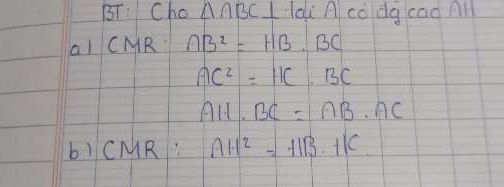 BT: Cho △ABC ⊥ tại A có đg cao AH
a) CMR: AB² = HB . BC
AC² = HC . BC
AH . BC = AB . AC
b) CMR: AH² = HB . HC